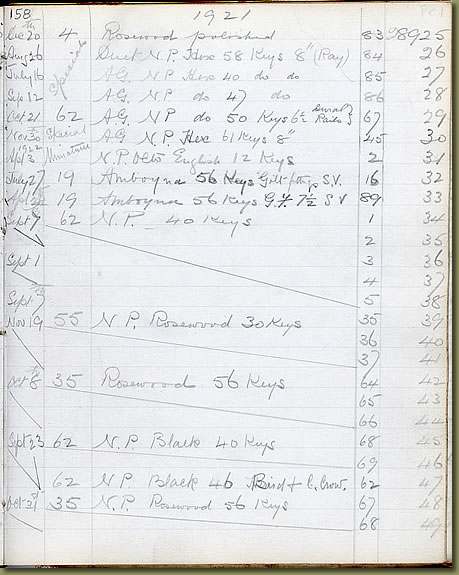 158 1921
Dec 20 4 Rosewood polished 83 38925
Aug 26 Specials Duet N.P. Hex 58 Keys 8" (Ray) 84 26
July 16 AG. N.P Hex 40 do do 85 27
Sep 12 AG. N.P do 47 do 86 28
Oct 21 62 AG. N.P do 50 Keys 6¼ 67 29
Nov 30 Special AG N.P. Hex 61 Keys 8" 45 30
1922 3 Miniature N.P. Octo English 12 Keys 2 31
July 27 19 Amboyna 56 Keys Gilt S.V. 16 32
19 Amboyna 56 Keys G.f. 7½ S V 89 33
Sept 7 62 N.P. 40 Keys 1 34
2 35
Sept 1 3 36
4 37
Sept 5 38
Nov 19 55 N.P. Rosewood 30 Keys 35 39
36 40
37 41
Oct 8 35 Rosewood 56 Keys 64 42
65 43
66 44
Sept 23 62 N.P. Black 40 Keys 68 45
69 46
62 N.P. Black 46 Bird & C. Crow. 62 47
Oct 31 35 N.P. Rosewood 56 Keys 67 48
68 49